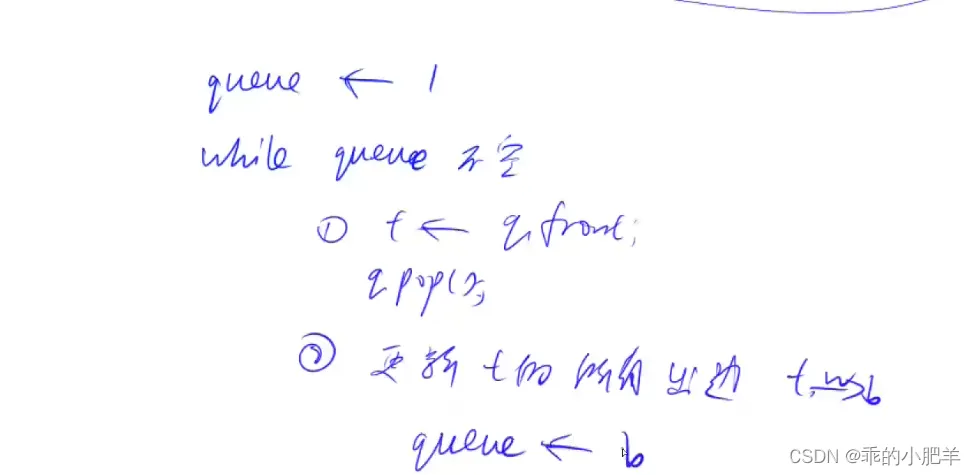 queue ← 1
while queue 不空
① t ← q.front;
q.pop();
② 更新 t 的所有出边 t →w b
queue ← b
CSDN @乖的小肥羊